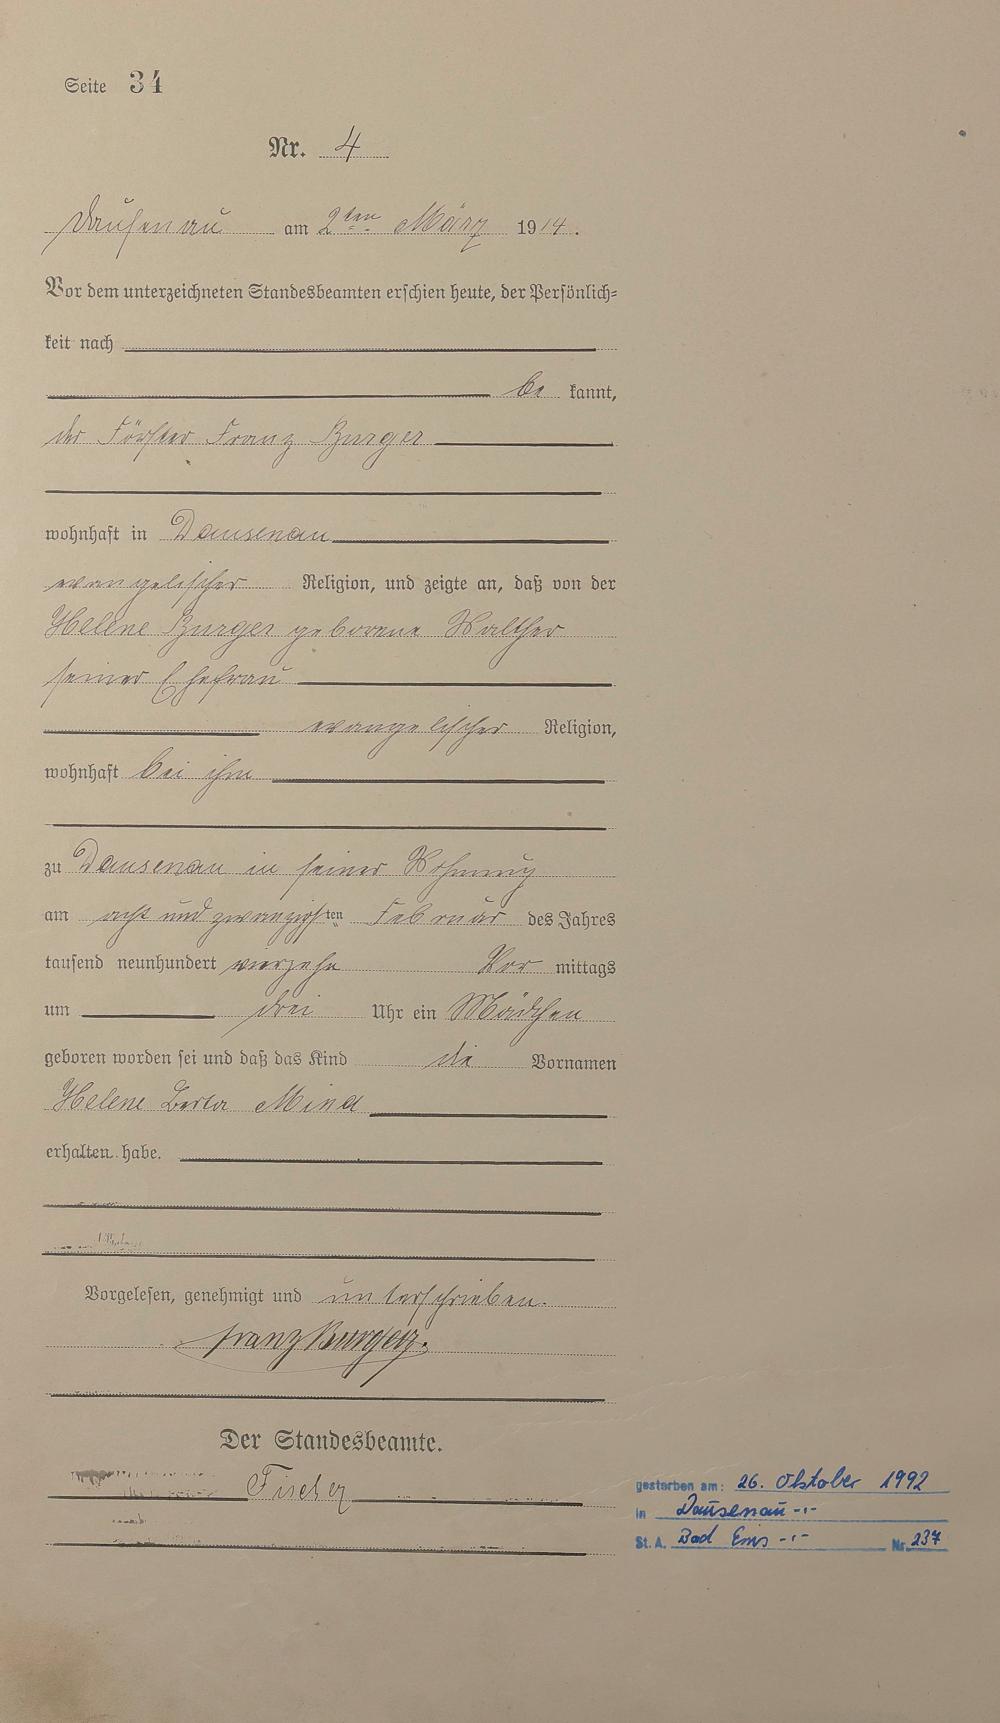 Seite 34
Nr. 4
Dausenau am 2ten März 1914.
Vor dem unterzeichneten Standesbeamten erschien heute, der Persönlich=
keit nach
be kannt,
der Förster Franz Burger
wohnhaft in Dausenau
evangelischer Religion, und zeigte an, daß von der
Helene Burger geborene Walther
seiner Ehefrau
evangelischer Religion,
wohnhaft bei ihm
zu Dausenau in seiner Wohnung
am acht und zwanzigsten Februar des Jahres
tausend neunhundert vierzehn Vor mittags
um drei Uhr ein Mädchen
geboren worden sei und daß das Kind die Vornamen
Helene Berta Mina
erhalten habe.
Vorgelesen, genehmigt und unterschrieben.
Franz Burger.
Der Standesbeamte.
Fischer
gestorben am: 26. Oktober 1992
in Dausenau -·-
St. A. Bad Ems -·- Nr. 237